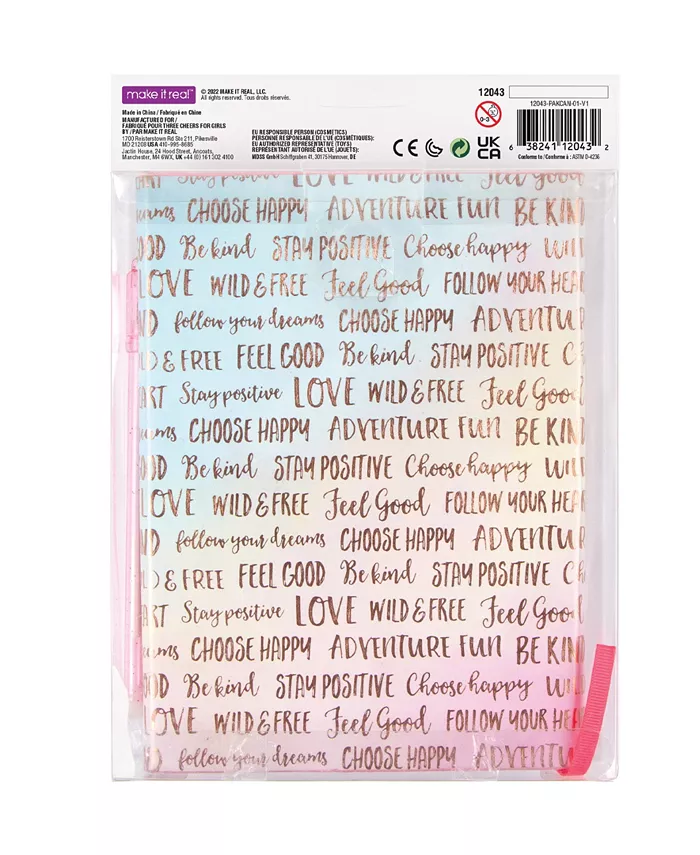 make it real™
© 2022 MAKE IT REAL, LLC.
All rights reserved. Tous droits réservés.
Made in China / Fabriqué en Chine
MANUFACTURED FOR /
FABRIQUÉ POUR THREE CHEERS FOR GIRLS
BY / PAR MAKE IT REAL
1700 Reisterstown Rd Ste 211, Pikesville
MD 21208 USA 410-995-8685
Jactin House, 24 Hood Street, Ancoats,
Manchester, M4 6WX, UK +44 (0) 161 302 4100
EU RESPONSIBLE PERSON (COSMETICS)
PERSONNE RESPONSABLE DE L'UE (COSMÉTIQUES):
EU AUTHORIZED REPRESENTATIVE (TOYS)
REPRÉSENTANT AUTORISÉ DE L'UE (JOUETS):
MDSS GmbH Schiffgraben 41, 30175 Hannover, DE
12043
0-3
CE
UK
CA
12043-PAKCAN-01-V1
6 38241 12043 2
Conforms to / Conforme à : ASTM D-4236
ART Stay positive LOVE WILD & FREE Feel Good FOLLOW YOUR HEA
eams CHOOSE HAPPY ADVENTURE FUN BE KIND
OOD Be kind STAY POSITIVE Choose happy WILD
LOVE WILD & FREE Feel Good FOLLOW YOUR HEA
ND follow your dreams CHOOSE HAPPY ADVENTU
D & FREE FEEL GOOD Be kind STAY POSITIVE C
ART Stay positive LOVE WILD & FREE Feel Good
ams CHOOSE HAPPY ADVENTURE FUN BE KIND
OD Be kind STAY POSITIVE Choose happy WILD
LOVE WILD & FREE Feel Good FOLLOW YOUR HEA
ND follow your dreams CHOOSE HAPPY ADVENTUR
D & FREE FEEL GOOD Be kind STAY POSITIVE Ch
ART Stay positive LOVE WILD & FREE Feel Good
ams CHOOSE HAPPY ADVENTURE FUN BE KIND
OD Be kind STAY POSITIVE Choose happy WILD
LOVE WILD & FREE Feel Good FOLLOW YOUR HEA
ND follow your dreams CHOOSE HAPPY ADVENTU